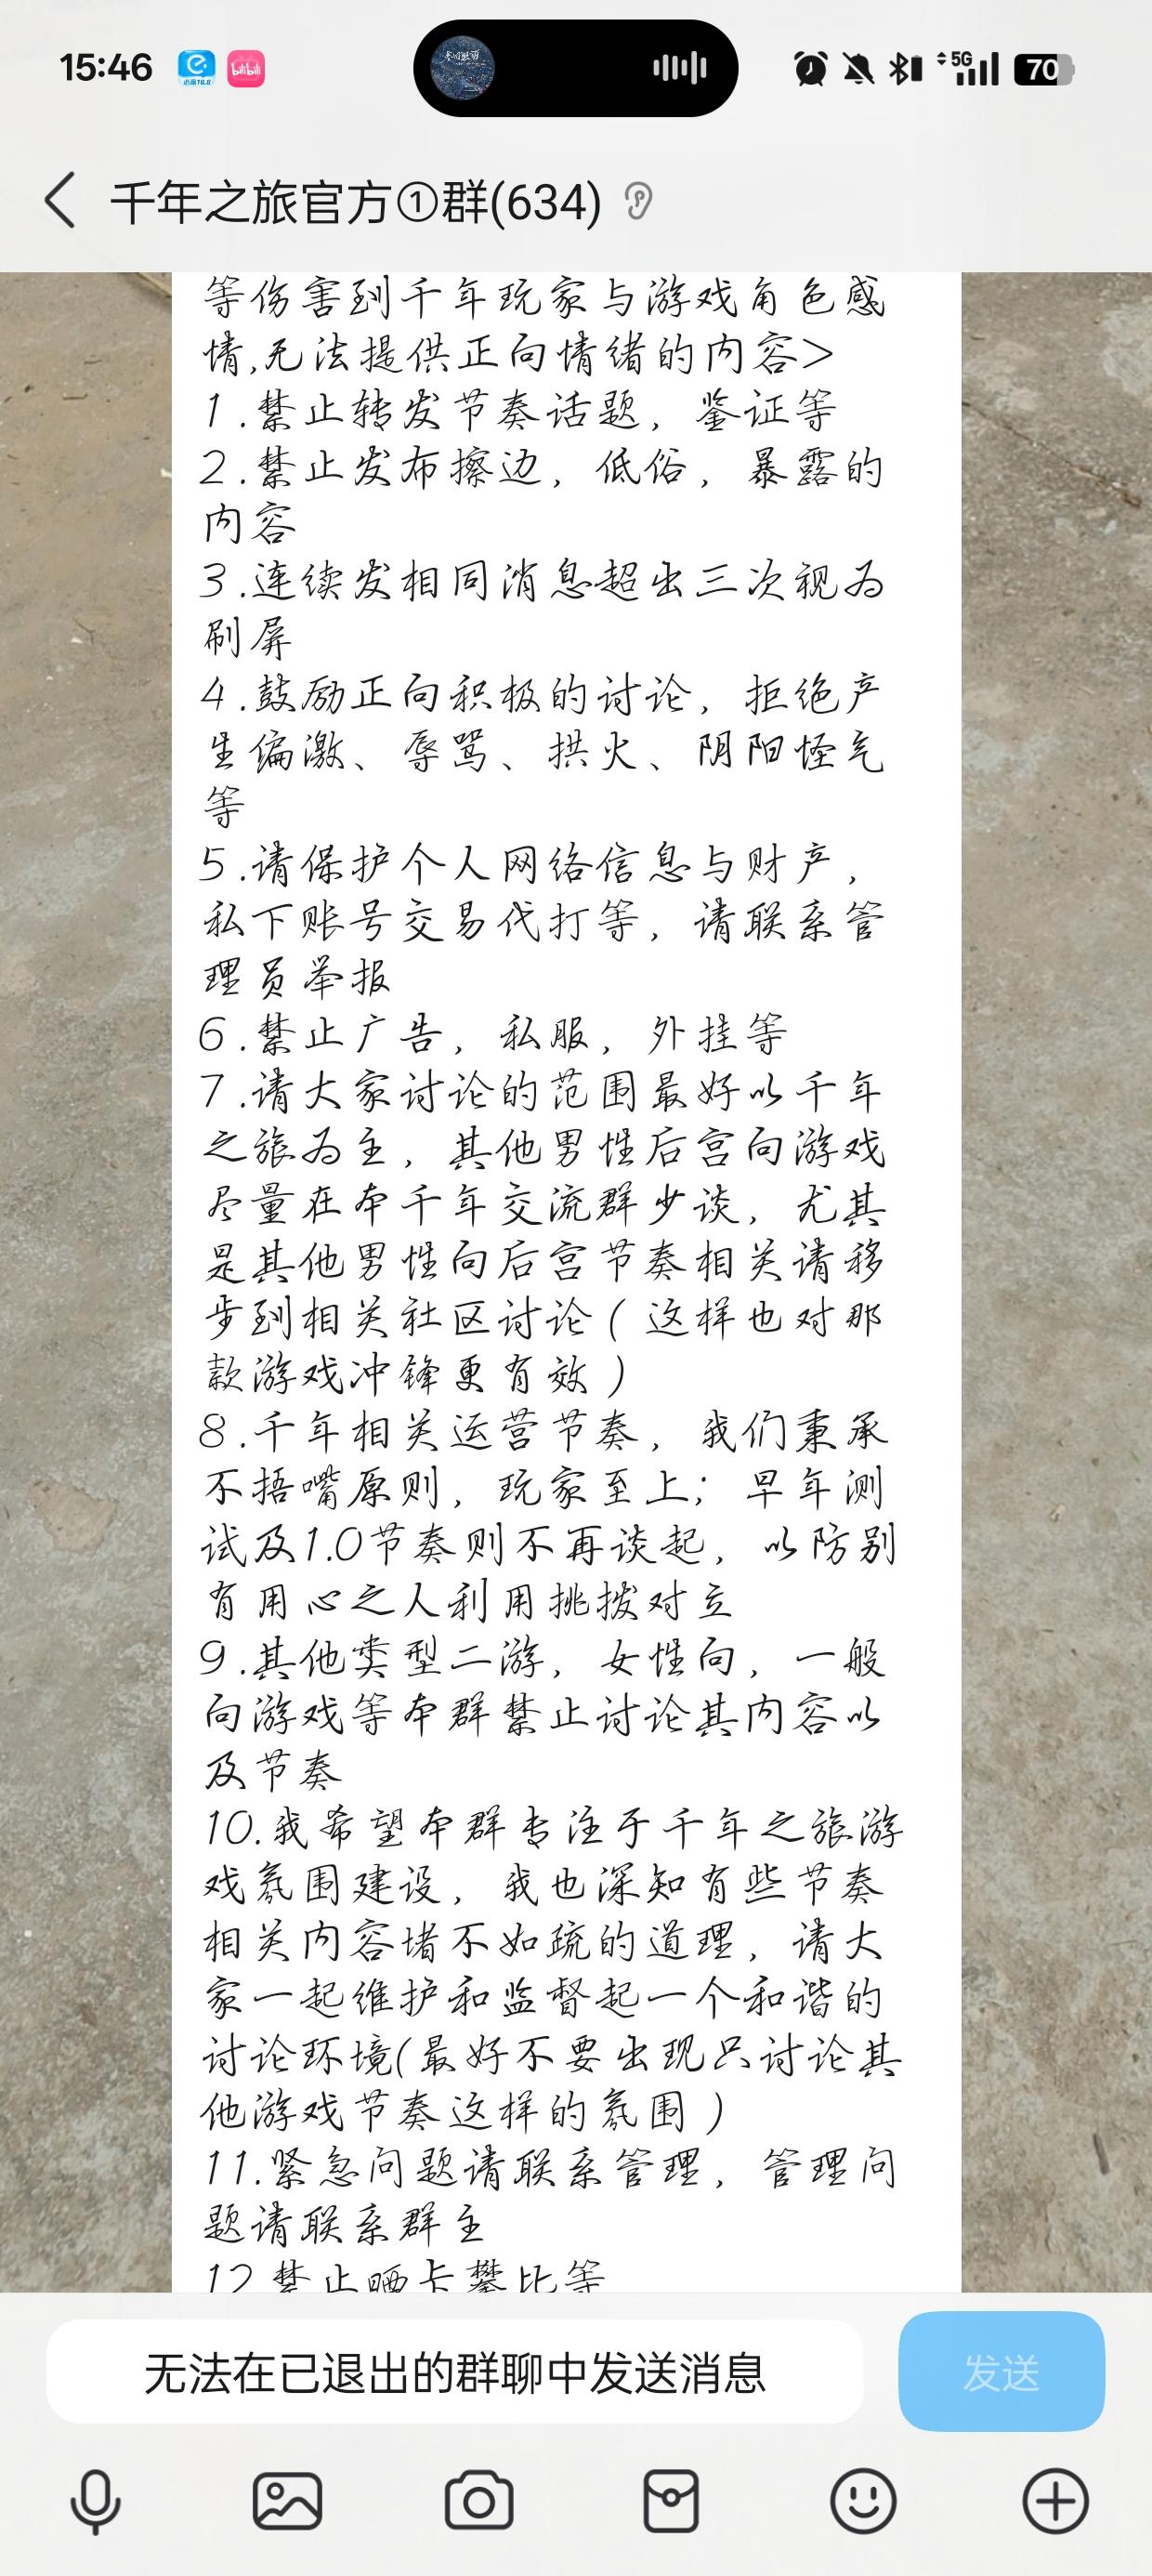 15:46
必应18.8
bilibili
5G
70
千年之旅官方①群(634)
等伤害到千年玩家与游戏角色感
情,无法提供正向情绪的内容>
1.禁止转发节奏话题，鉴证等
2.禁止发布擦边，低俗，暴露的
内容
3.连续发相同消息超出三次视为
刷屏
4.鼓励正向积极的讨论，拒绝产
生偏激、辱骂、拱火、阴阳怪气
等
5.请保护个人网络信息与财产，
私下账号交易代打等，请联系管
理员举报
6.禁止广告，私服，外挂等
7.请大家讨论的范围最好以千年
之旅为主，其他男性后宫向游戏
尽量在本千年交流群少谈，尤其
是其他男性向后宫节奏相关请移
步到相关社区讨论（这样也对那
款游戏冲锋更有效）
8.千年相关运营节奏，我们秉承
不捂嘴原则，玩家至上；早年测
试及1.0节奏则不再谈起，以防别
有用心之人利用挑拨对立
9.其他类型二游，女性向，一般
向游戏等本群禁止讨论其内容以
及节奏
10.我希望本群专注于千年之旅游
戏氛围建设，我也深知有些节奏
相关内容堵不如疏的道理，请大
家一起维护和监督起一个和谐的
讨论环境(最好不要出现只讨论其
他游戏节奏这样的氛围）
11.紧急问题请联系管理，管理问
题请联系群主
12.禁止晒卡攀比等
无法在已退出的群聊中发送消息
发送